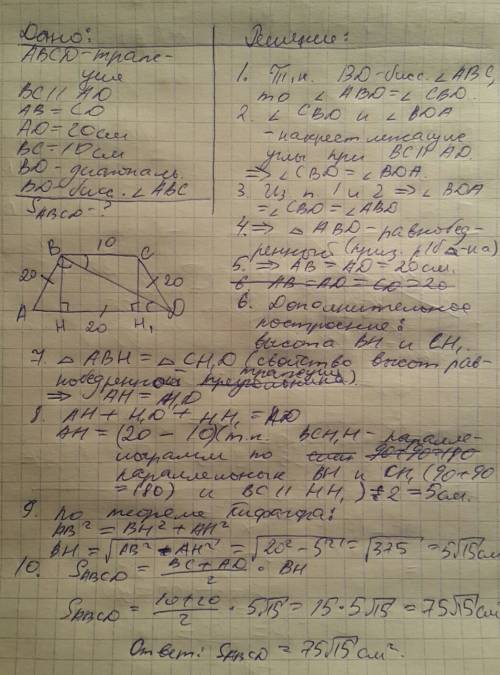 Дано:
ABCD-трапе-
ция
BC || AD
AB = CD
AD = 20 см
BC = 10 см
BD - диагональ
BD - бисс. ∠ ABC
S ABCD - ?
B 10 C
20 20
A H 20 H₁ D
Решение:
1. Т.к. BD-бисс. ∠ ABC,
то ∠ ABD = ∠ CBD.
2. ∠ CBD и ∠ BDA
- накрест лежащие
углы при BC || AD.
⇒ ∠ CBD = ∠ BDA.
3. Из п. 1 и 2 ⇒ ∠ BDA
= ∠ CBD = ∠ ABD
4. ⇒ △ ABD - равнобед-
ренный (призн. р/б △-ка)
5. ⇒ AB = AD = 20 см.
6. AB = AD = CD = 20
6. Дополнительное
построение:
высота BH и CH₁
7. △ ABH = △ CH₁D (свойство высот рав-
нобедренной трапеции)
⇒ AH = H₁D
8. AH + H₁D + HH₁ = AD
AH = (20 - 10)(т.к. BCH₁H - паралле-
лограмм по 90+90=180
параллельным BH и CH₁ (90+90
= 180) и BC || HH₁) : 2 = 5 см.
9. по теореме Пифагора:
AB² = BH² + AH²
BH = √AB² - AH² = √20² - 5² = √375 = 5√15 см
10. S ABCD = BC + AD / 2 · BH
S ABCD = 10+20 / 2 · 5√15 = 15 · 5√15 = 75√15 см²
Ответ: S ABCD = 75√15 см².